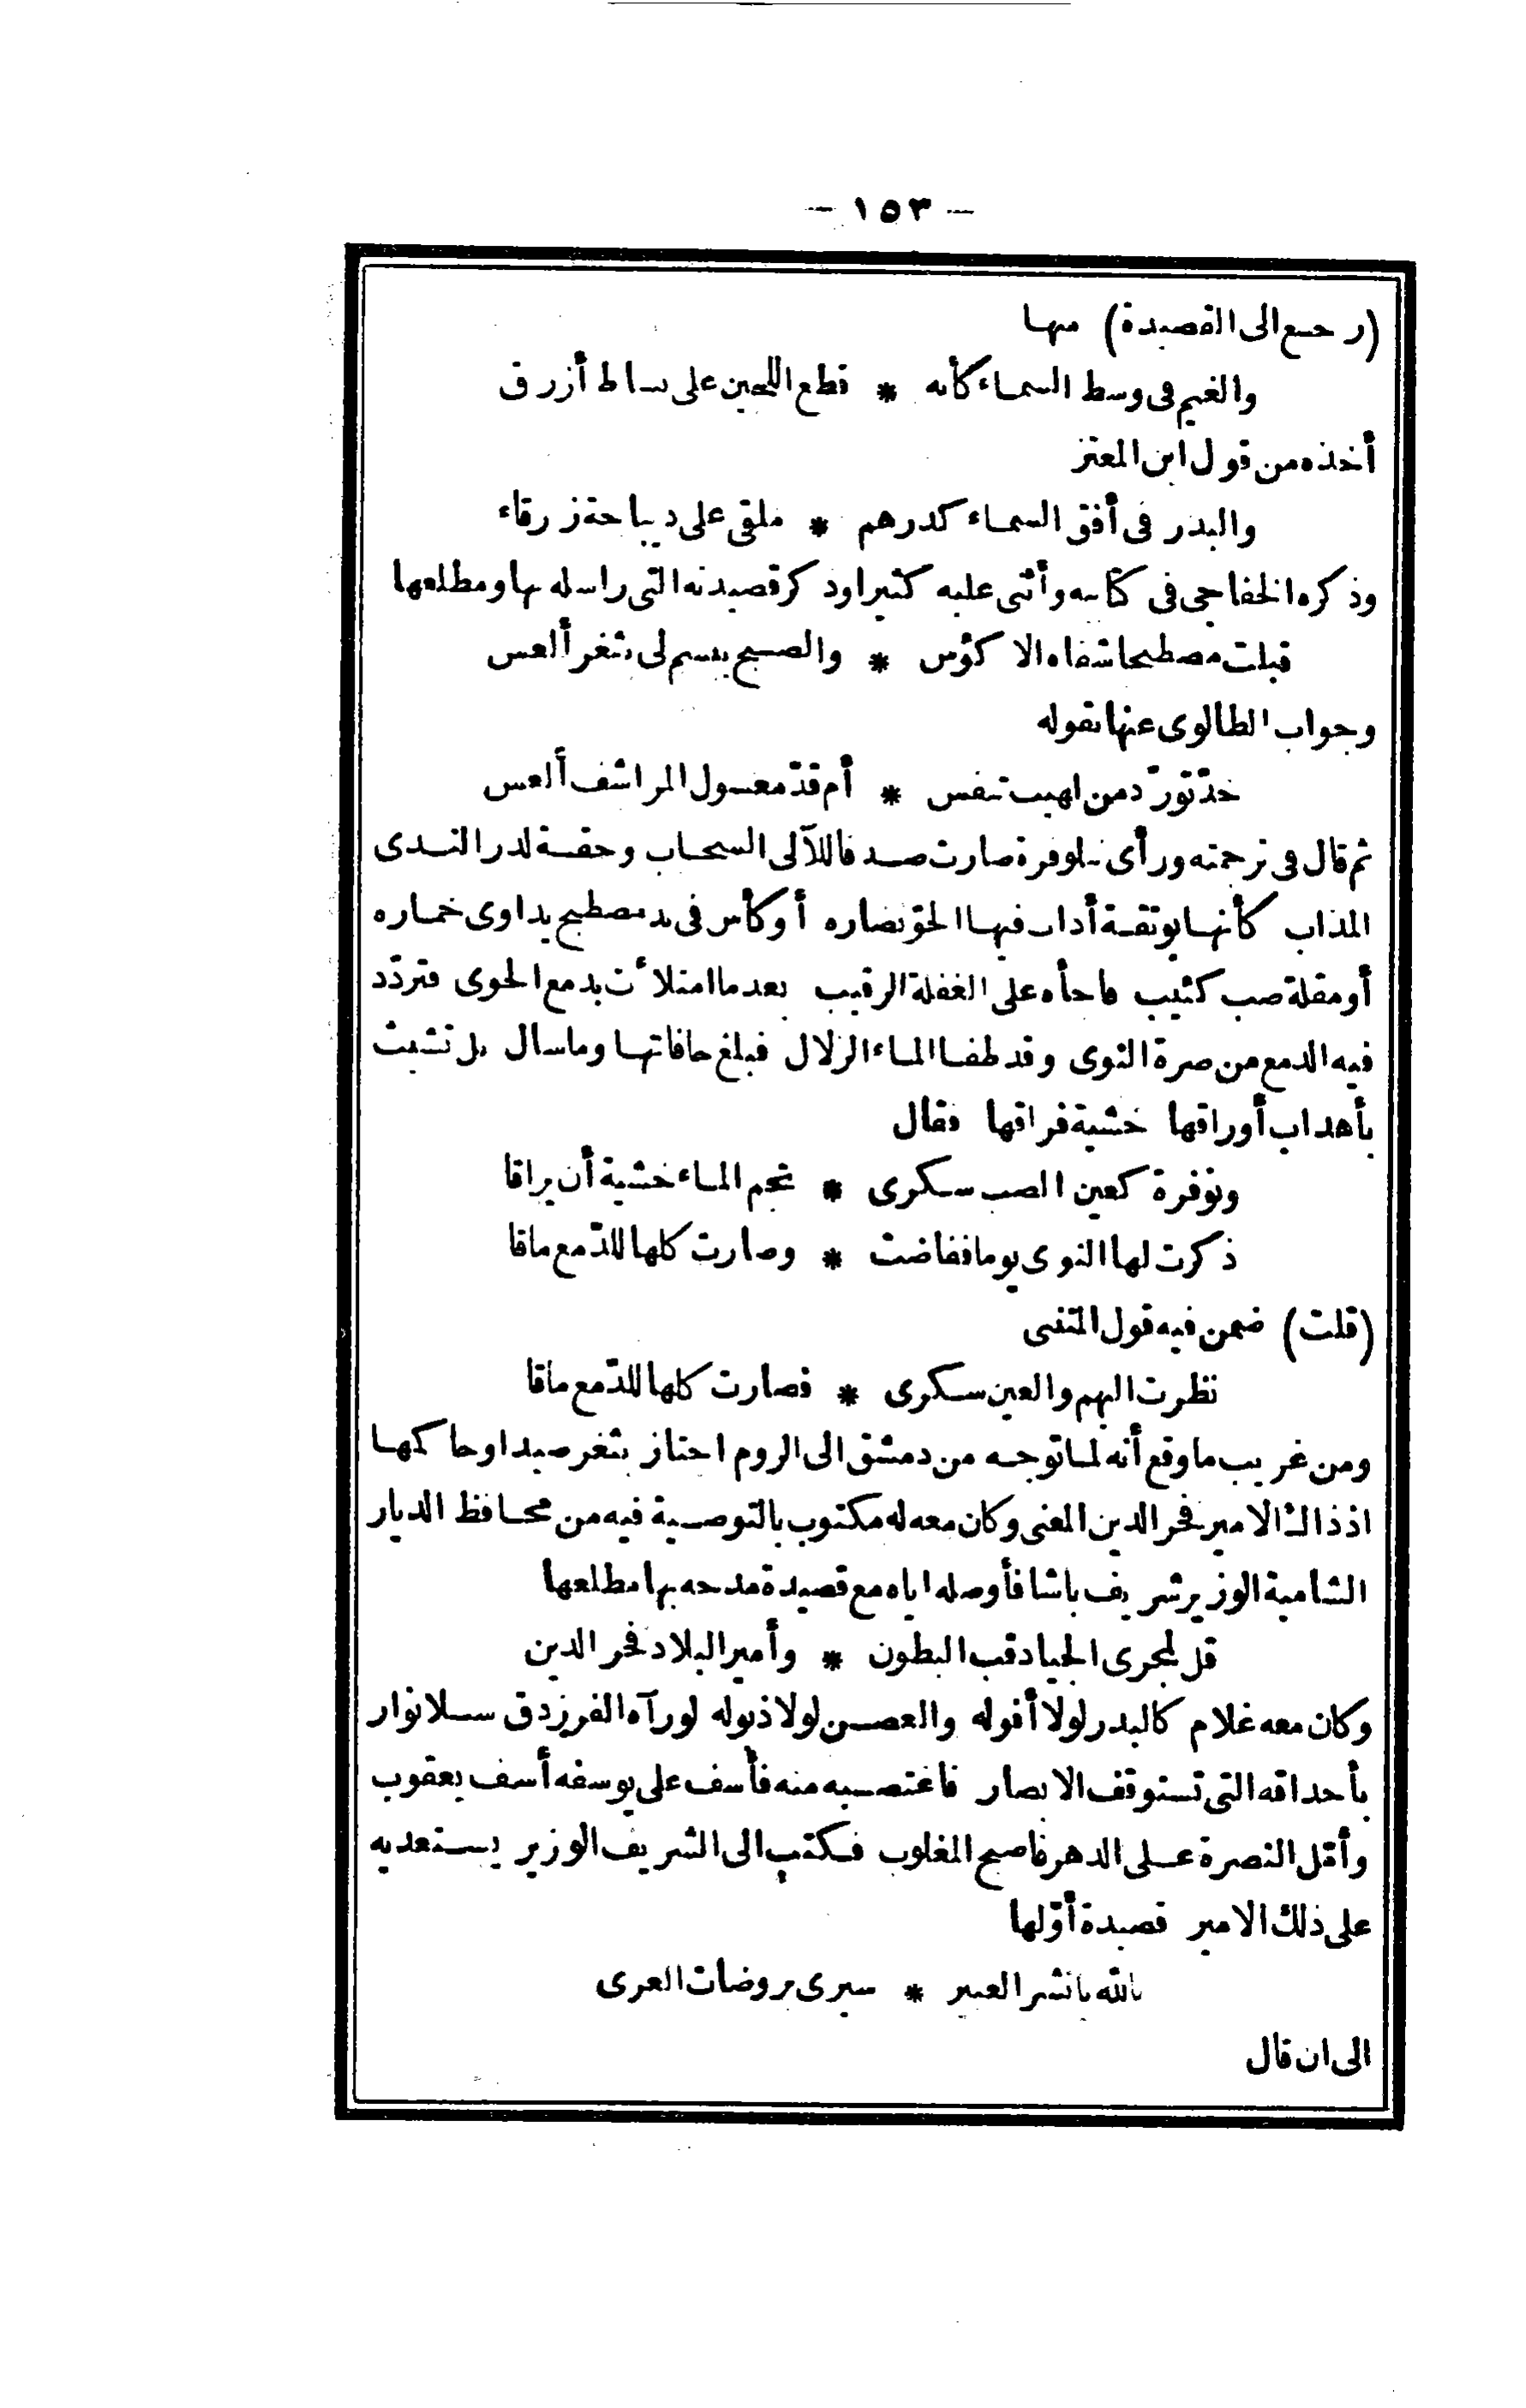 — ١٥٣ —
(رجع الى القصيدة) منها
والغيم فى وسط السماء كأنه * قطع اللجين على بساط أزرق
أخذه من قول ابن المعتز
والبدر فى أفق السماء كدرهم * ملقى على ديباجة زرقاء
وذكره الخفاجى فى كتابه وأثنى عليه كثيرا وذكر قصيدته التى راسله بها ومطلعها
قبلت مصطبحا شفاه الاكؤس * والصبح يبسم لى بثغر ألعس
وجواب الطالوى عنها بقوله
خدّ تورّد من لهيب تنفس * أم قدّ معسول المراشف ألعس
ثم قال فى ترجمته ورأى نيلوفرة صارت صدفا للآلى السحاب وحقة لدر الندى
المذاب كأنها بوتقة أذاب فيها الجوّ نضاره أو كأس فى يد مصطبح يداوى خماره
أو مقلة صب كئيب فاجأه على الغفلة الرقيب بعد ما امتلأت بدمع الجوى فتردّد
فيه الدمع من صرة النوى وقد طفا الماء الزلال فبلغ حافاتها وما سال بل تشبث
بأهداب أوراقها خشية فراقها فقال
ونوفرة كعين الصب سكرى * تجم الماء خشية أن يراقا
ذكرت لها النوى يوما ففاضت * وصارت كلها للدّمع ماقا
(قلت) ضمن فيه قول المتنبى
نظرت اليهم والعين سكرى * فصارت كلها للدّمع ماقا
ومن غريب ما وقع أنه لما توجه من دمشق الى الروم اجتاز بثغر صيدا وحاكمها
اذ ذاك الامير فخر الدين المعنى وكان معه له مكتوب بالتوصية فيه من محافظ الديار
الشامية الوزير شريف باشا فأوصله اياه مع قصيدة مدحه بها مطلعها
قل لمجرى الجياد قب البطون * وأمير البلاد فخر الدين
وكان معه غلام كالبدر لولا أفوله والغصن لولا ذبوله لو رآه الفرزدق سلا نوار
بأحداقه التى تستوقف الابصار فاغتصبه منه فأسف على يوسفه أسف يعقوب
وأمّل النصرة على الدهر فاصبح المغلوب فكتب الى الشريف الوزير يستعديه
على ذلك الامير قصيدة أوّلها
بالله يا نشر العبير * سيرى بروضات العرى
الى ان قال